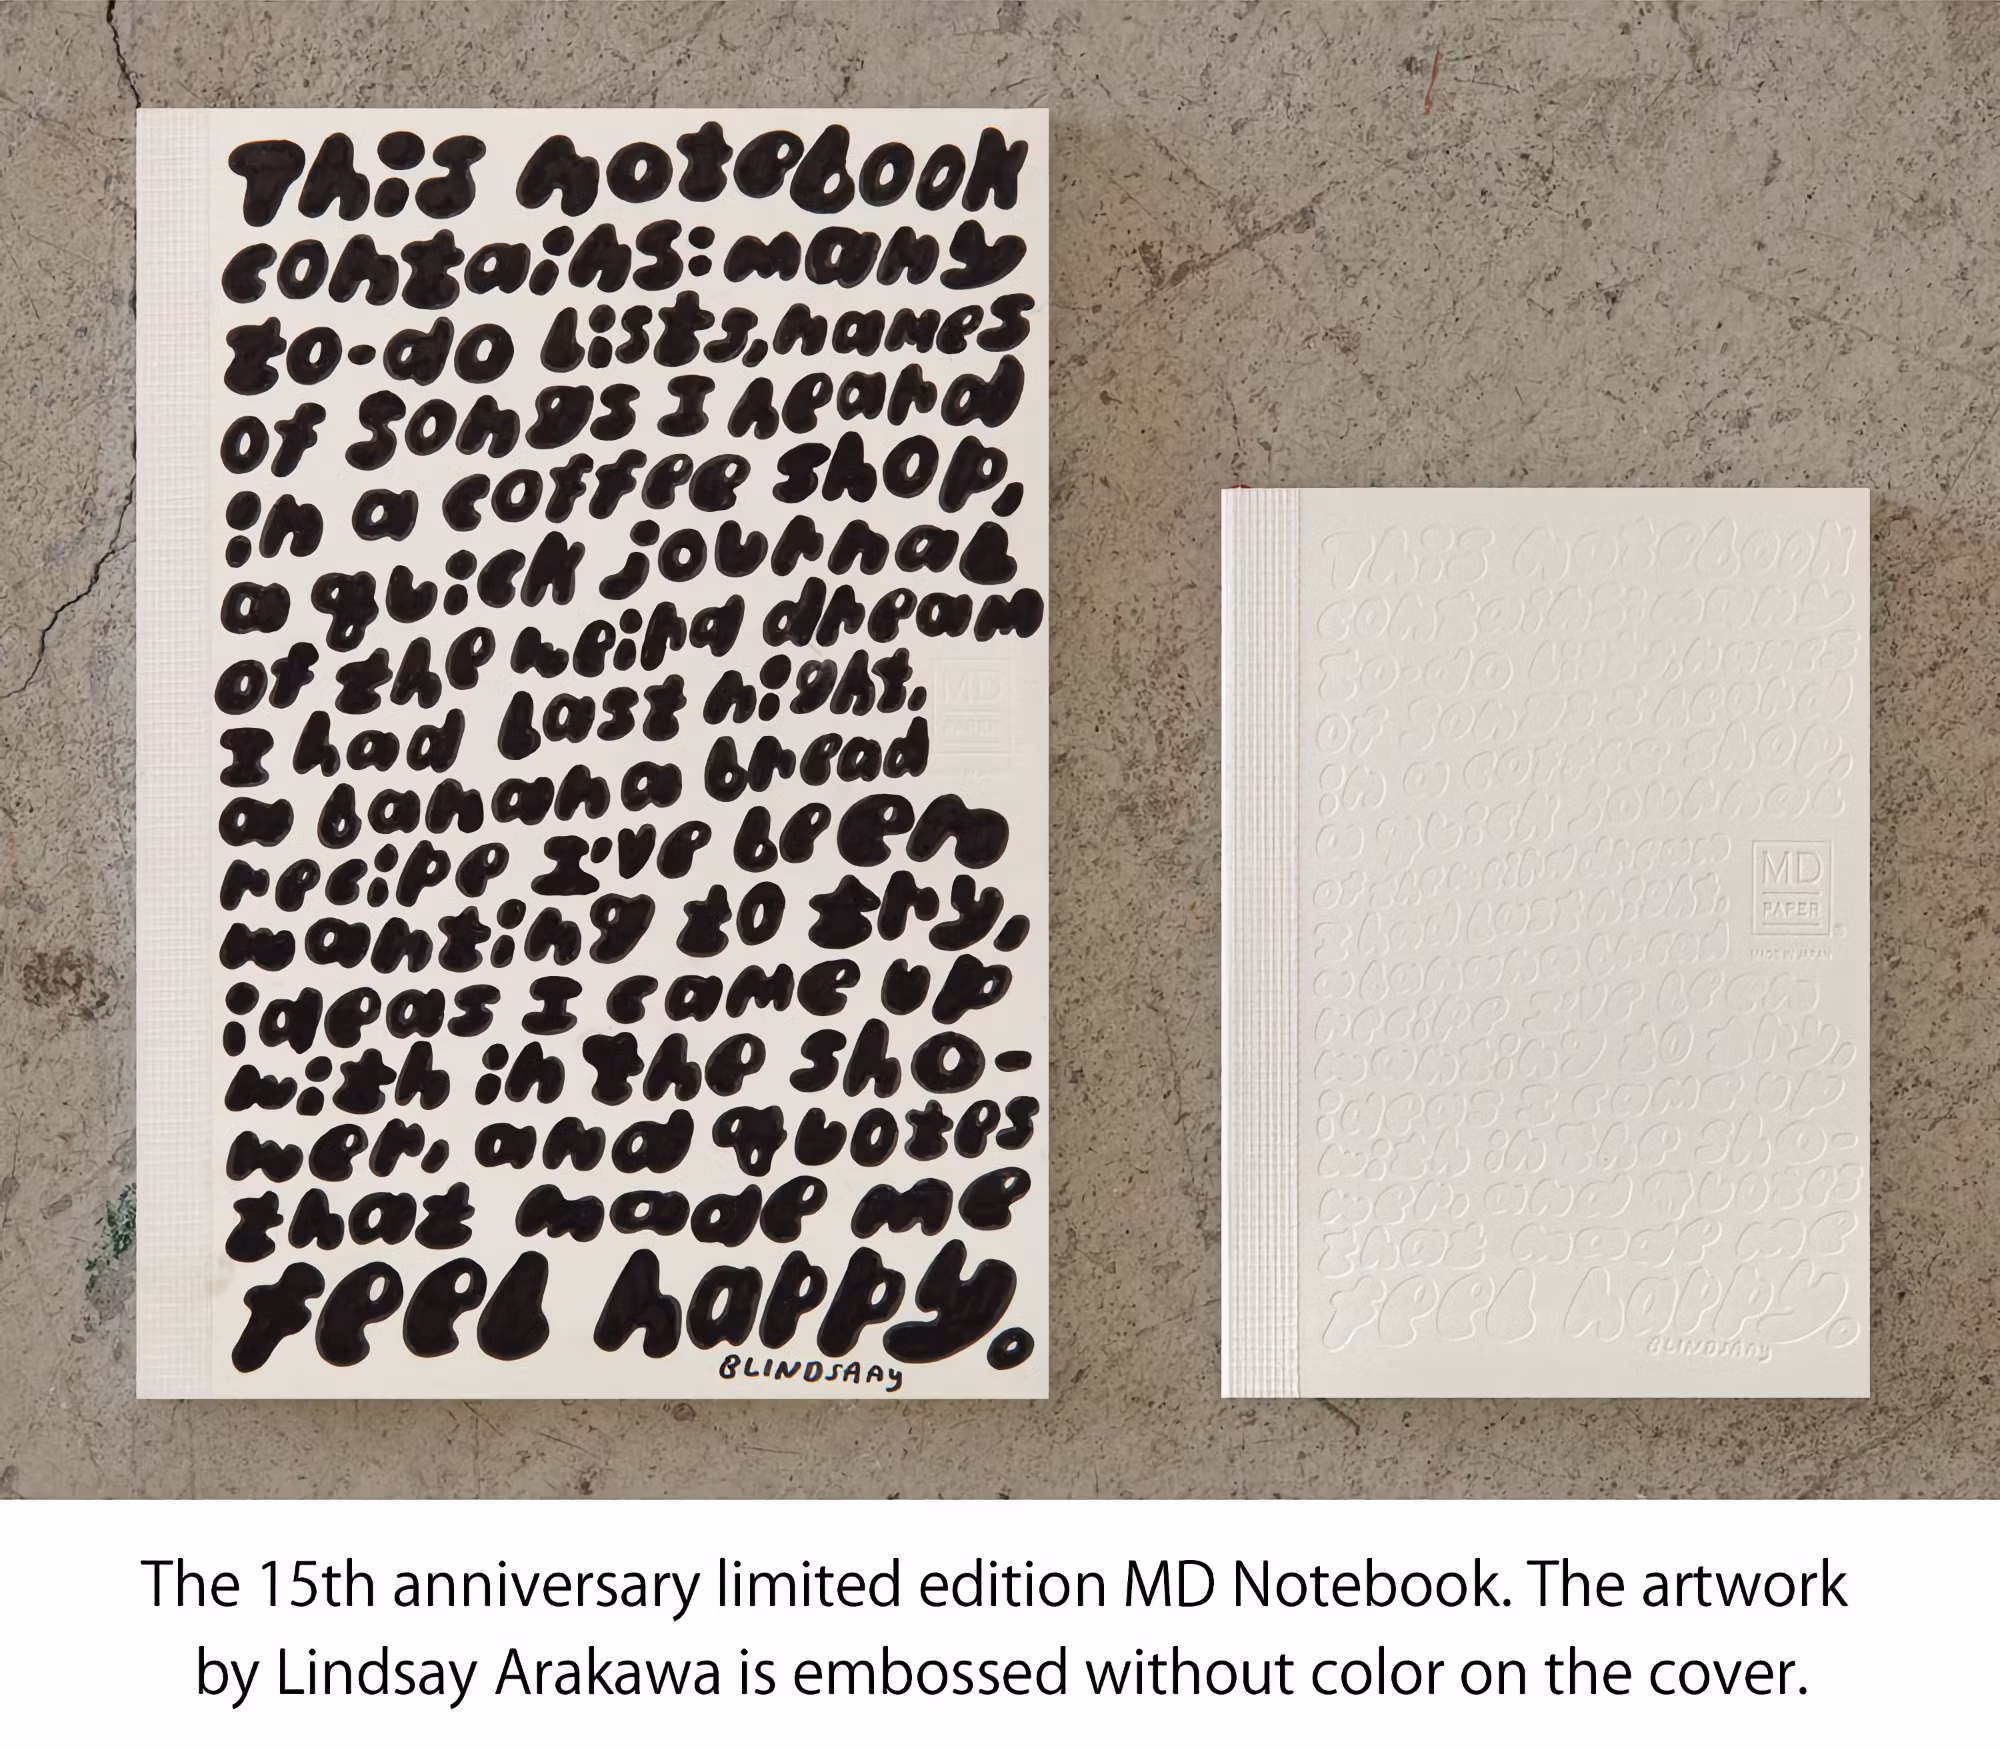 This notebook
contains: many
to-do lists, names
of songs I heard
in a coffee shop,
a quick journal
of the weird dream
I had last night,
a banana bread
recipe I've been
wanting to try,
ideas I came up
with in the sho-
wer, and quotes
that made me
feel happy.
BLINDSAAY
MD
This notebook
contains: many
to-do lists, names
of songs I heard
in a coffee shop,
a quick journal
of the weird dream
I had last night,
a banana bread
recipe I've been
wanting to try,
ideas I came up
with in the sho-
wer, and quotes
that made me
feel happy.
BLINDSAAY
MD
PAPER
MADE IN JAPAN
The 15th anniversary limited edition MD Notebook. The artwork
by Lindsay Arakawa is embossed without color on the cover.